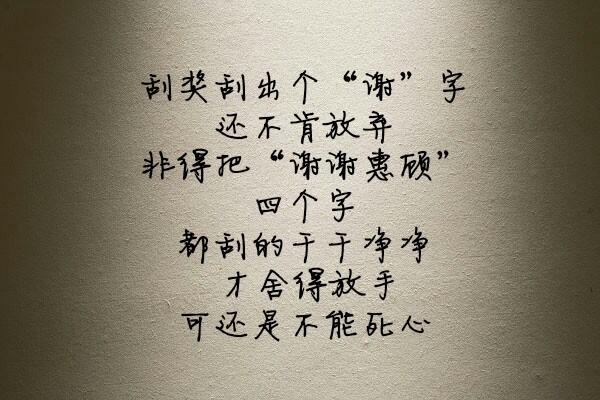 刮奖刮出个“谢”字
还不肯放弃
非得把“谢谢惠顾”
四个字
都刮的干干净净
才舍得放手
可还是不能死心